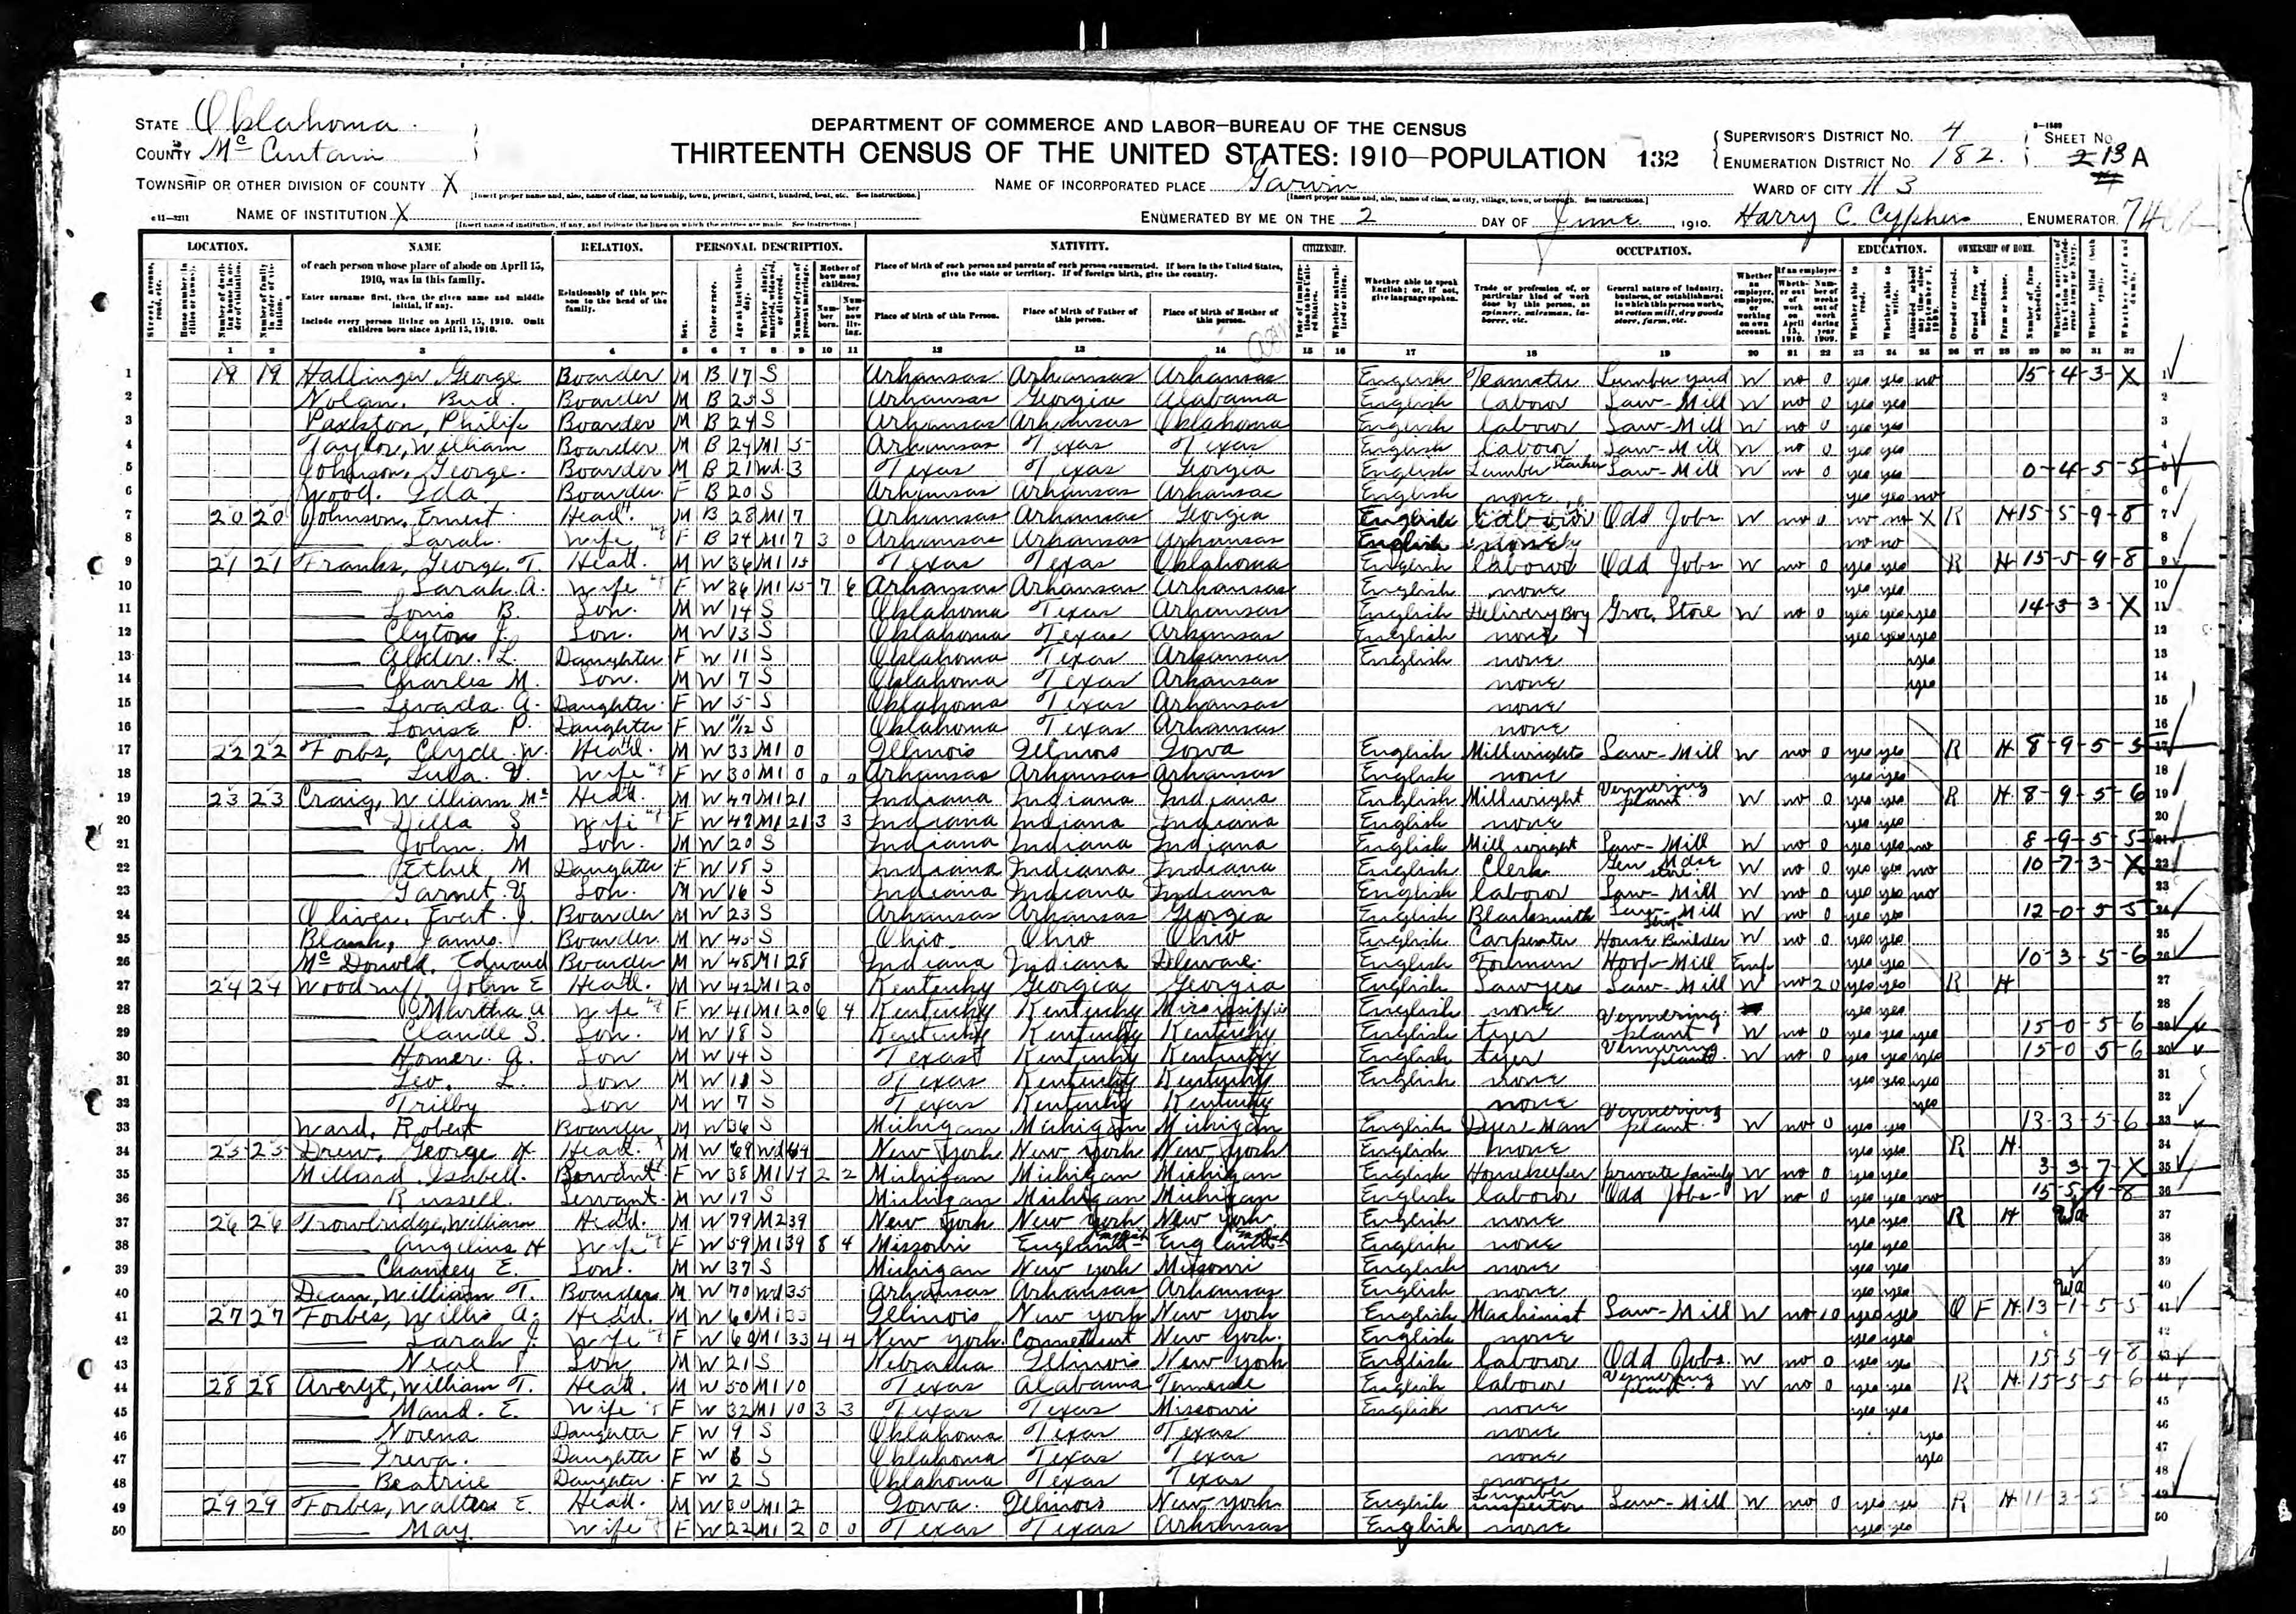 STATE Oklahoma
COUNTY McCurtain
DEPARTMENT OF COMMERCE AND LABOR—BUREAU OF THE CENSUS
THIRTEENTH CENSUS OF THE UNITED STATES: 1910—POPULATION 132
SUPERVISOR'S DISTRICT NO. 4
ENUMERATION DISTRICT NO. 182.
SHEET NO.
13 A
TOWNSHIP OR OTHER DIVISION OF COUNTY X
NAME OF INCORPORATED PLACE Garvin
WARD OF CITY # 3
NAME OF INSTITUTION X
ENUMERATED BY ME ON THE 2 DAY OF June, 1910. Harry C. Cyphers, ENUMERATOR
LOCATION. NAME RELATION. PERSONAL DESCRIPTION. NATIVITY. CITIZENSHIP. OCCUPATION. EDUCATION. OWNERSHIP OF HOME.
of each person whose place of abode on April 15, 1910, was in this family.
Enter surname first, then the given name and middle initial, if any.
Include every person living on April 15, 1910. Omit children born since April 15, 1910.
Relationship of this person to the head of the family.
Place of birth of each person and parents of each person enumerated. If born in the United States, give the state or territory. If of foreign birth, give the country.
Place of birth of this Person. Place of birth of Father of this person. Place of birth of Mother of this person.
1 19 19 Hallinger George Boarder M B 17 S Arkansas Arkansas Arkansas English Teamster Lumber yard W no 0 yes yes no 15-4-3-X
2 Nolan, Bud. Boarder M B 25 S Arkansas Georgia Alabama English labour Saw-Mill W no 0 yes yes
3 Paxkston, Philip Boarder M B 24 S Arkansas Arkansas Oklahoma English labour Saw-Mill W no 0 yes yes
4 Taylor, William Boarder M B 24 M1 5 Arkansas Texas Texas English labour Saw-Mill W no 0 yes yes
5 Johnson, George. Boarder M B 21 Wd. 3 Texas Texas Georgia English Lumber Stacker Saw-Mill W no 0 yes yes 0-4-5-5
6 Wood. Ida Boarder F B 20 S Arkansas Arkansas Arkansas English none yes yes no
7 20 20 Johnson, Ernest Head. M B 28 M1 7 Arkansas Arkansas Georgia English labour Odd Jobs W no 0 no no X R H 15-5-9-8
8 Sarah. Wife F B 24 M1 7 3 0 Arkansas Arkansas Arkansas English none no no
9 21 21 Franks, George. T. Head. M W 36 M1 15 Texas Texas Oklahoma English labour Odd Jobs W no 0 yes yes R H 15-5-9-8
10 Sarah A. Wife F W 36 M1 15 7 6 Arkansas Arkansas Arkansas English none yes yes
11 Louis B. Son. M W 14 S Oklahoma Texas Arkansas English Delivery Boy Groc. Store W no 0 yes yes yes 14-3-3-X
12 Clyton J. Son. M W 13 S Oklahoma Texas Arkansas English none yes yes yes
13 L. Daughter F W 11 S Oklahoma Texas Arkansas English none yes
14 Charles M. Son. M W 7 S Oklahoma Texas Arkansas none yes
15 Levada A. Daughter F W 5 S Oklahoma Texas Arkansas none
16 Louise P. Daughter F W 11/12 S Oklahoma Texas Arkansas none
17 22 22 Forbs, Clyde W. Head. M W 33 M1 0 Illinois Illinois Iowa English Millwright Saw-Mill W no 0 yes yes R H 8-9-5-5
18 Lula. V. Wife F W 30 M1 0 0 0 Arkansas Arkansas Arkansas English none yes yes
19 23 23 Craig, William Mc Head. M W 47 M1 21 Indiana Indiana Indiana English Millwright Vennering plant W no 0 yes yes R H 8-9-5-6
20 Della S Wife F W 42 M1 21 3 3 Indiana Indiana Indiana English none yes yes
21 John. M Son. M W 20 S Indiana Indiana Indiana English Mill wright Saw-Mill W no 0 yes yes no 8-9-5-5
22 Ethel M Daughter F W 18 S Indiana Indiana Indiana English Clerk Gen Mdse store W no 0 yes yes no 10-7-3-X
23 Garnet V Son. M W 16 S Indiana Indiana Indiana English labour Saw-Mill W no 0 yes yes no
24 Oliver, Evert. J. Boarder M W 23 S Arkansas Arkansas Georgia English Blacksmith Saw-Mill W no 0 yes yes 12-0-5-5
25 Blank, James. Boarder M W 45 S Ohio Ohio Ohio English Carpenter House Builder W no 0 yes yes
26 McDonald, Edward Boarder M W 48 M1 28 Indiana Indiana Delaware. English Forman Hoop-Mill Emp yes yes 10-3-5-6
27 24 24 Woodruff John E Head. M W 42 M1 20 Kentucky Georgia Georgia English Sawyer Saw-Mill W no 20 yes yes R H
28 Martha A Wife F W 41 M1 20 6 4 Kentucky Kentucky Mississippi English none yes yes
29 Claude S. Son. M W 18 S Kentucky Kentucky Kentucky English tyer Vennering plant W no 0 yes yes yes 15-0-5-6
30 Homer. A. Son M W 14 S Texas Kentucky Kentucky English tyer Vennering plant W no 0 yes yes yes 15-0-5-6
31 Leo. L. Son M W 11 S Texas Kentucky Kentucky English none yes yes yes
32 Trilby Son M W 7 S Texas Kentucky Kentucky none yes
33 Ward, Robert Boarder M W 36 S Michigan Michigan Michigan English Man Vennering plant W no 0 yes yes 13-3-5-6
34 25 25 Drew, George H. Head. M W 69 Wd New York New York New York English none yes yes R H
35 Millard Isabell. Servant F W 38 M1 19 2 2 Michigan Michigan Michigan English Housekeeper private family W no 0 yes yes 3-3-7-X
36 Russell. Servant. M W 17 S Michigan Michigan Michigan English labour Odd Jobs W no 0 yes yes no 15-5-9-8
37 26 26 Trowbridge, William Head. M W 79 M2 39 New York New York New York English none yes yes R H Ua
38 Angeline H Wife F W 59 M1 39 8 4 Missouri England English England English English none yes yes
39 Chancey E. Son. M W 37 S Michigan New York Missouri English none yes yes
40 Dean, William T. Boarder M W 70 Wd 35 Arkansas Arkansas Arkansas English none yes yes Ua
41 27 27 Forbes, Willis A. Head. M W 60 M1 33 Illinois New York New York English Machinist Saw-Mill W no 10 yes yes O F H 13-1-5-5
42 Sarah J. Wife F W 60 M1 33 4 4 New York. Connettcut New York. English none yes yes
43 Neal Son M W 21 S Nebraska Illinois New York English labour Odd Jobs. W no 0 yes yes 15-5-9-8
44 28 28 Averyt, William T. Head. M W 50 M1 10 Texas Alabama Tennessee English labour Vennering plant W no 0 yes yes R H 15-5-5-6
45 Maud. E. Wife F W 32 M1 10 3 3 Texas Texas Missouri English none yes yes
46 Norena Daughter F W 9 S Oklahoma Texas Texas none yes
47 Treva. Daughter F W 6 S Oklahoma Texas Texas none yes
48 Beatrice Daughter F W 2 S Oklahoma Texas Texas none
49 29 29 Forbes, Walter E. Head. M W 30 M1 2 Iowa. Illinois New York English Lumber inspector Saw-Mill W no 0 yes yes R H 11-3-5-5
50 May. Wife F W 22 M1 2 0 0 Texas Texas Arkansas English none yes yes